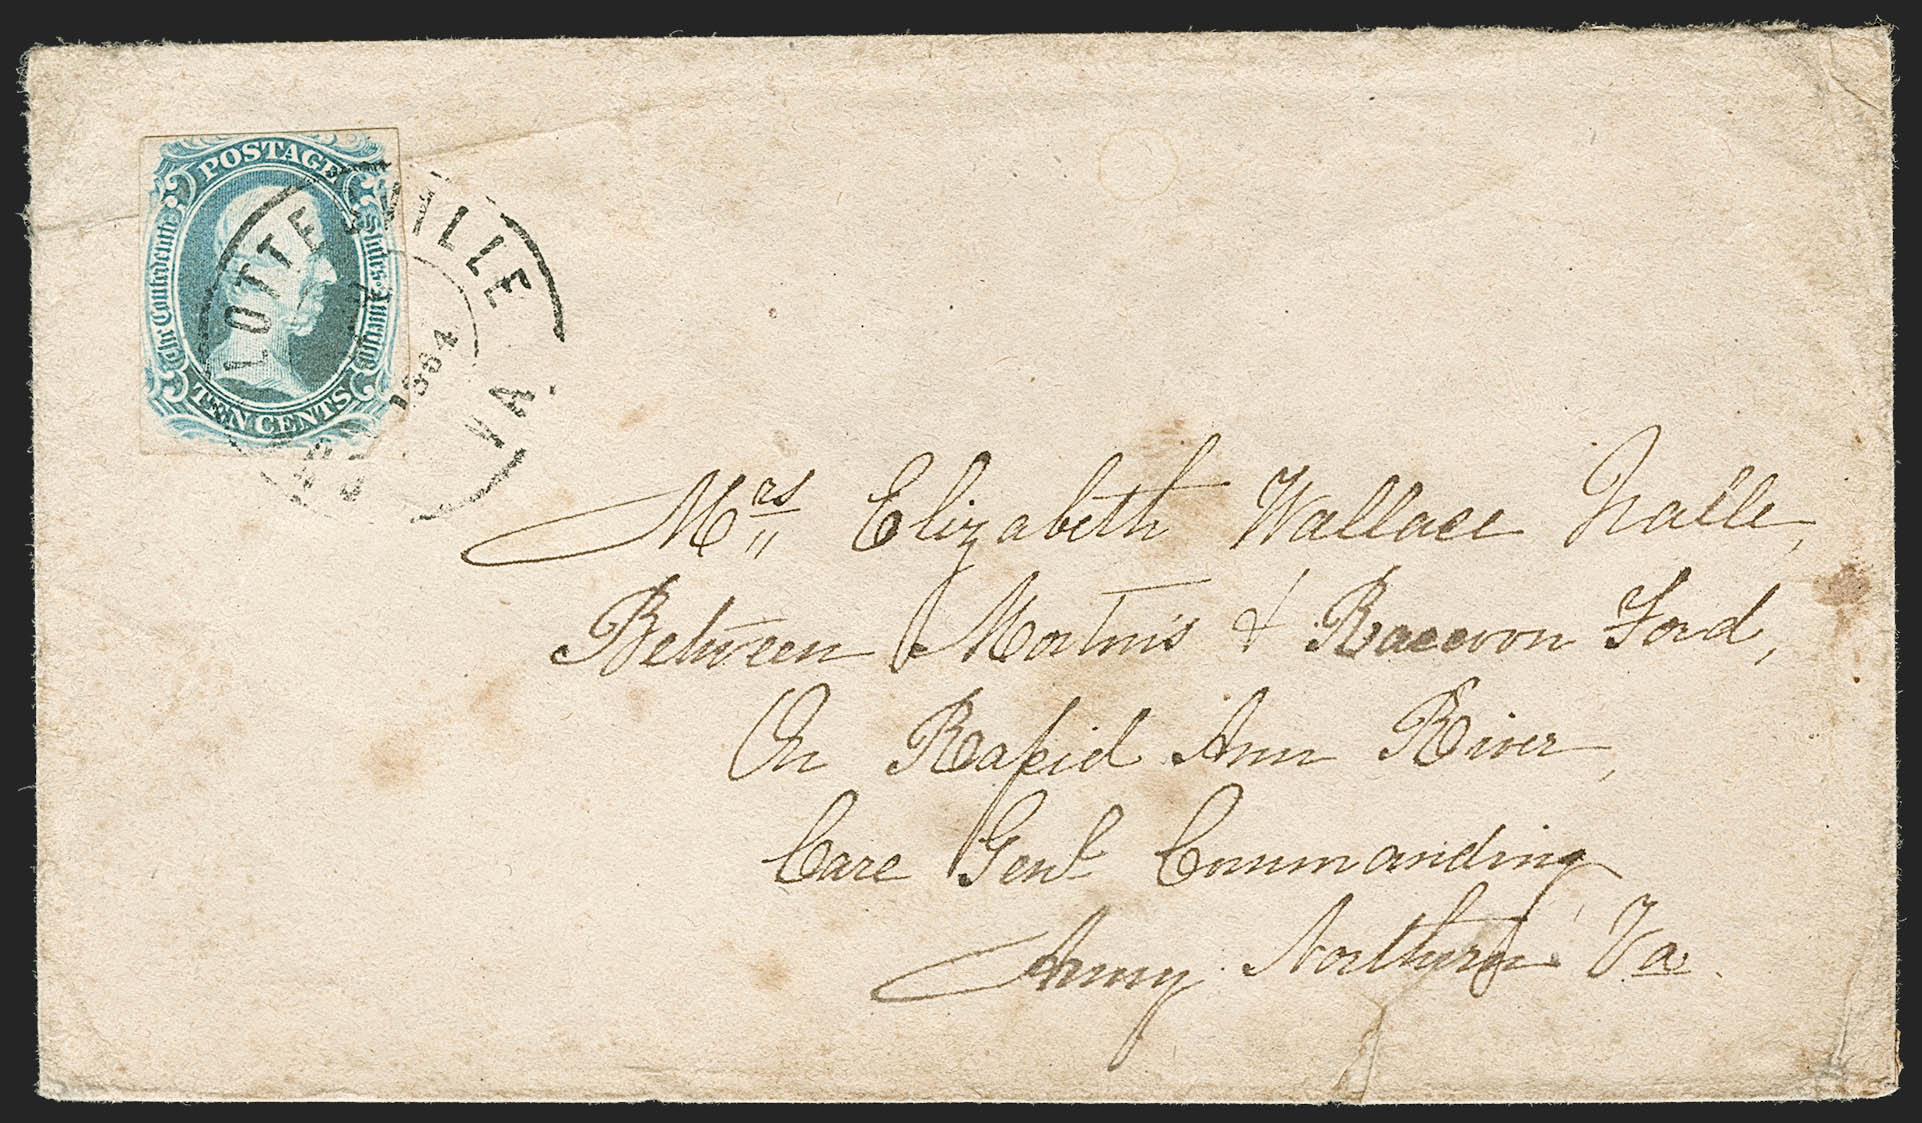 POSTAGE
The Confederate States of America
TEN CENTS
LOTTESVILLE
VA.
1864
Mrs Elizabeth Wallace Nalle,
Between Mortons & Raccoon Ford,
On Rapid Ann River,
Care Genl Commanding
Army Northern Va.